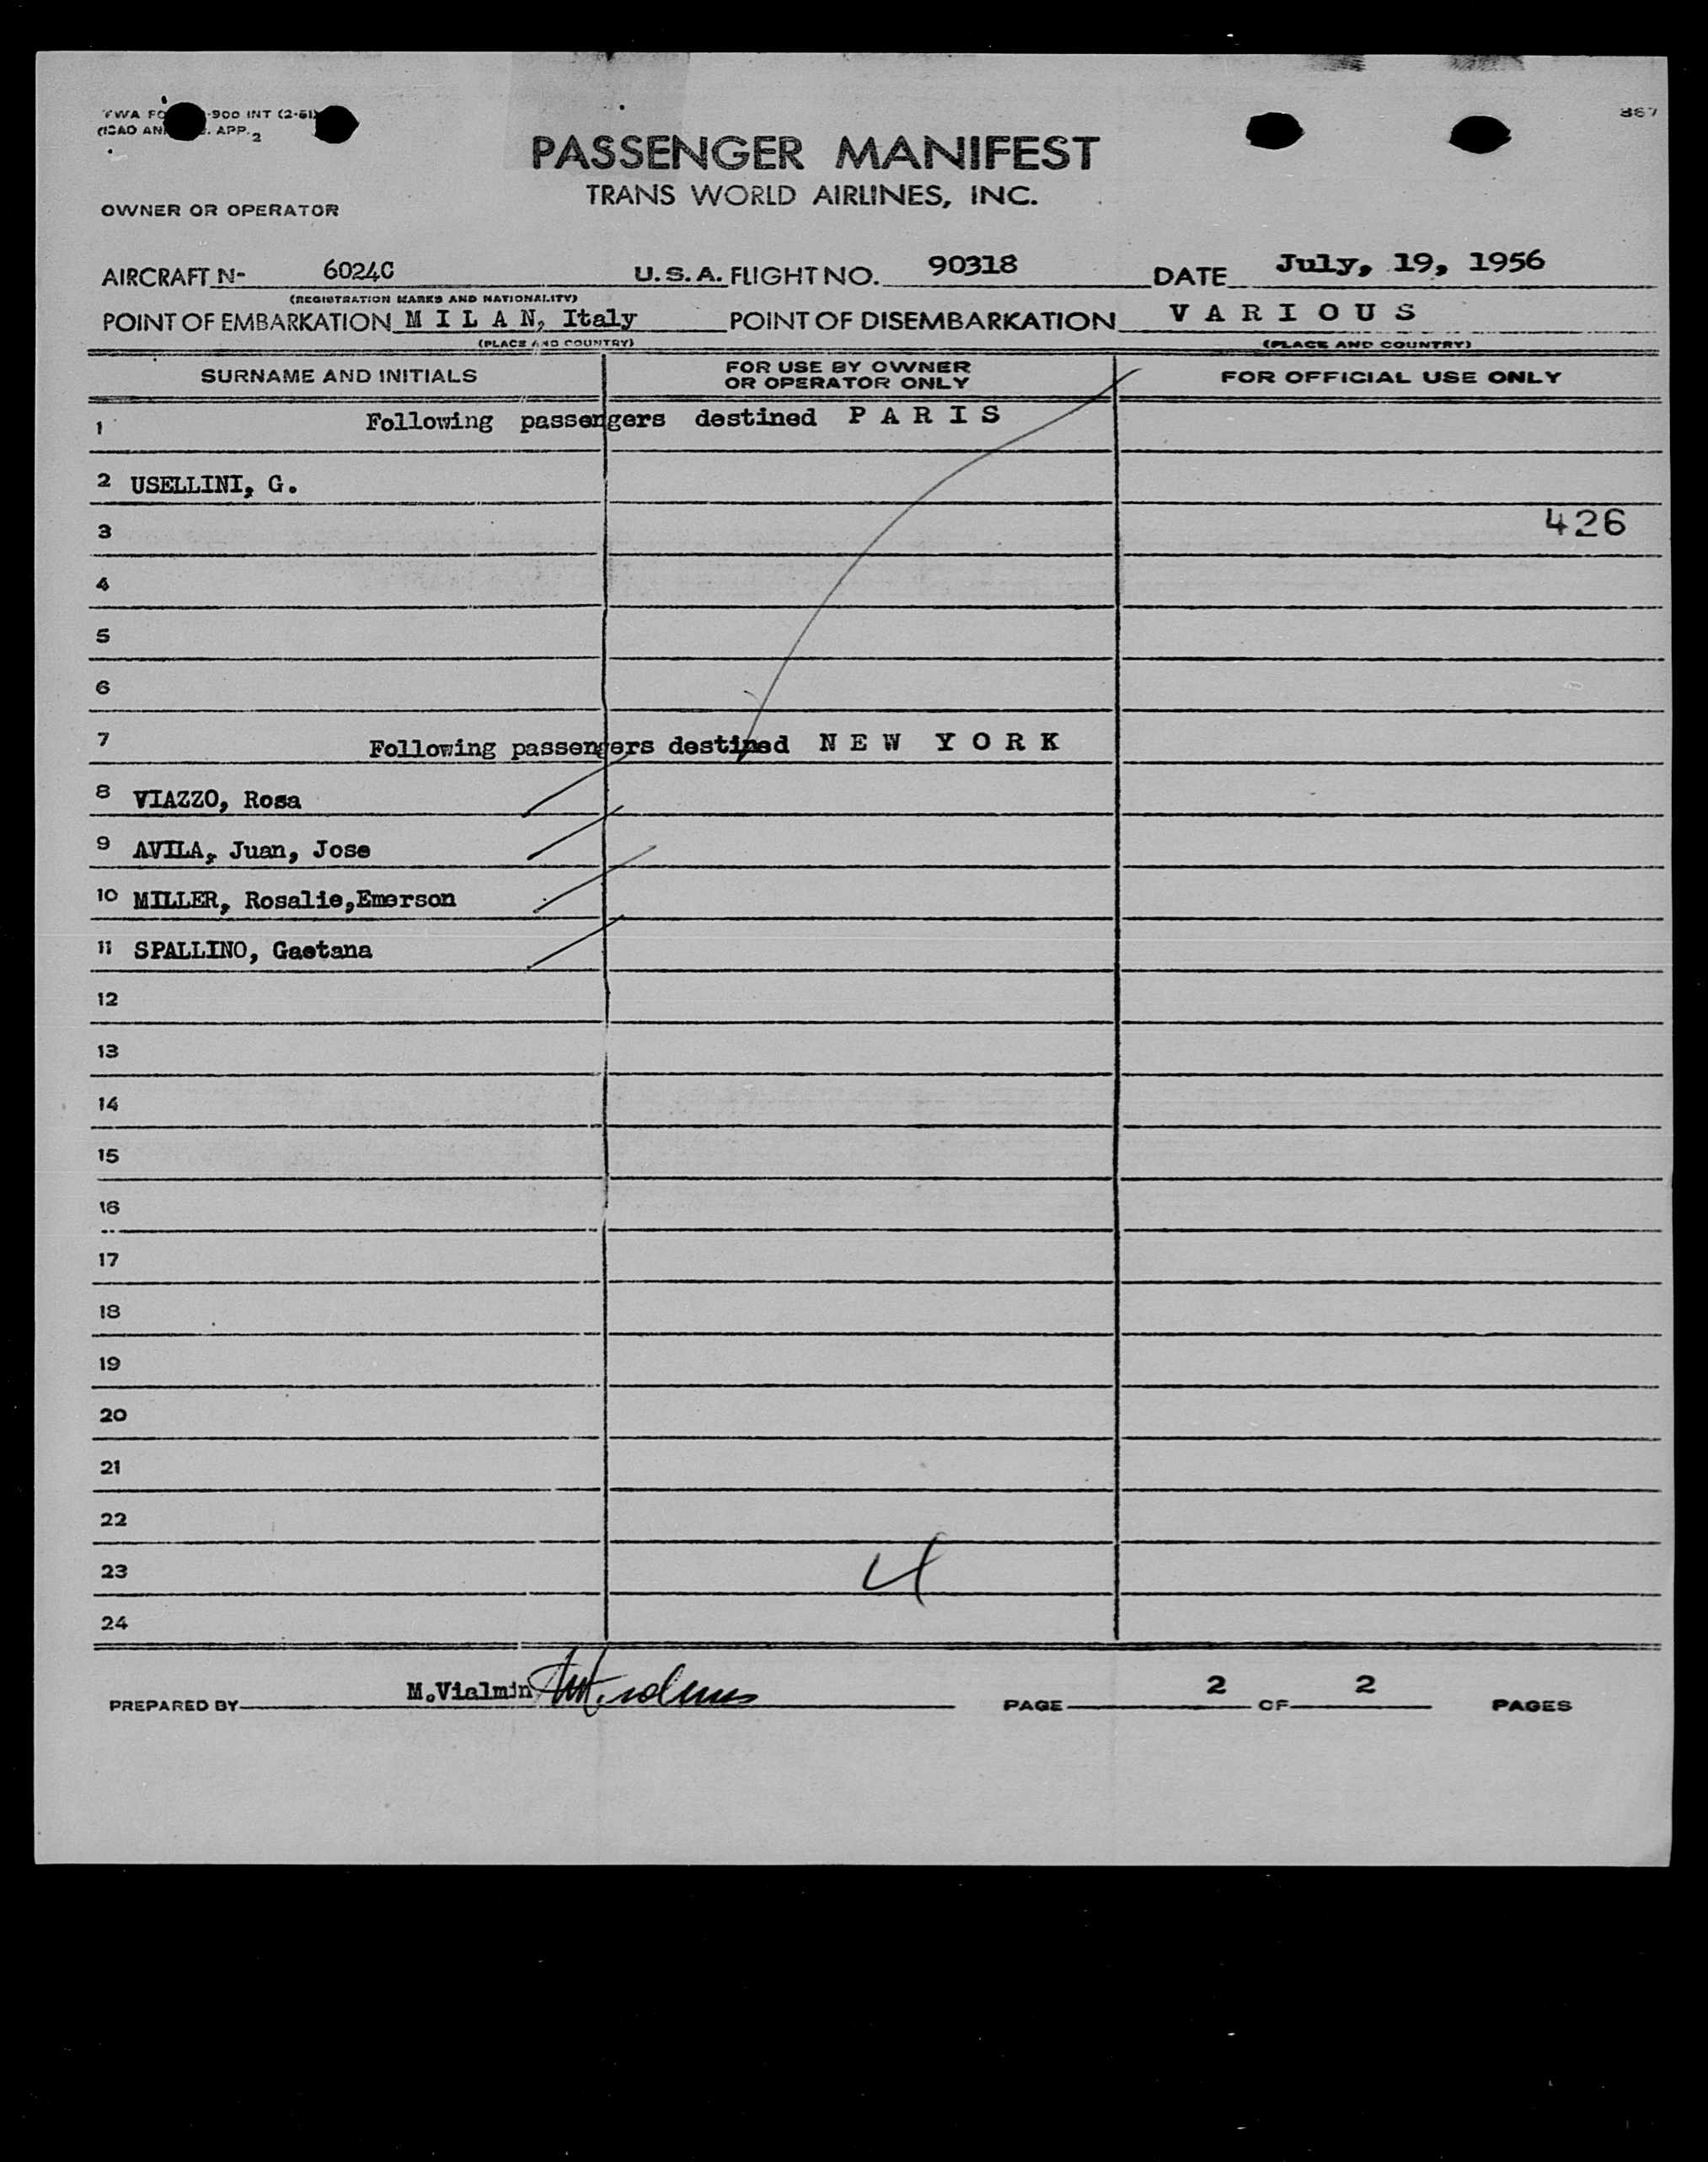 867
TWA FO -900 INT (2-51)
(ICAO AN . APP. 2
PASSENGER MANIFEST
TRANS WORLD AIRLINES, INC.
OWNER OR OPERATOR
AIRCRAFT N- 6024C U.S.A. FLIGHT NO. 90318 DATE July, 19, 1956
(REGISTRATION MARKS AND NATIONALITY)
POINT OF EMBARKATION M I L A N, Italy POINT OF DISEMBARKATION V A R I O U S
(PLACE AND COUNTRY) (PLACE AND COUNTRY)
SURNAME AND INITIALS FOR USE BY OWNER OR OPERATOR ONLY FOR OFFICIAL USE ONLY
1 Following passengers destined P A R I S
2 USELLINI, G.
3 426
4
5
6
7 Following passengers destined N E W Y O R K
8 VIAZZO, Rosa
9 AVILA, Juan, Jose
10 MILLER, Rosalie,Emerson
11 SPALLINO, Gaetana
12
13
14
15
16
17
18
19
20
21
22
23 4
24
PREPARED BY M.Vialmin PAGE 2 OF 2 PAGES